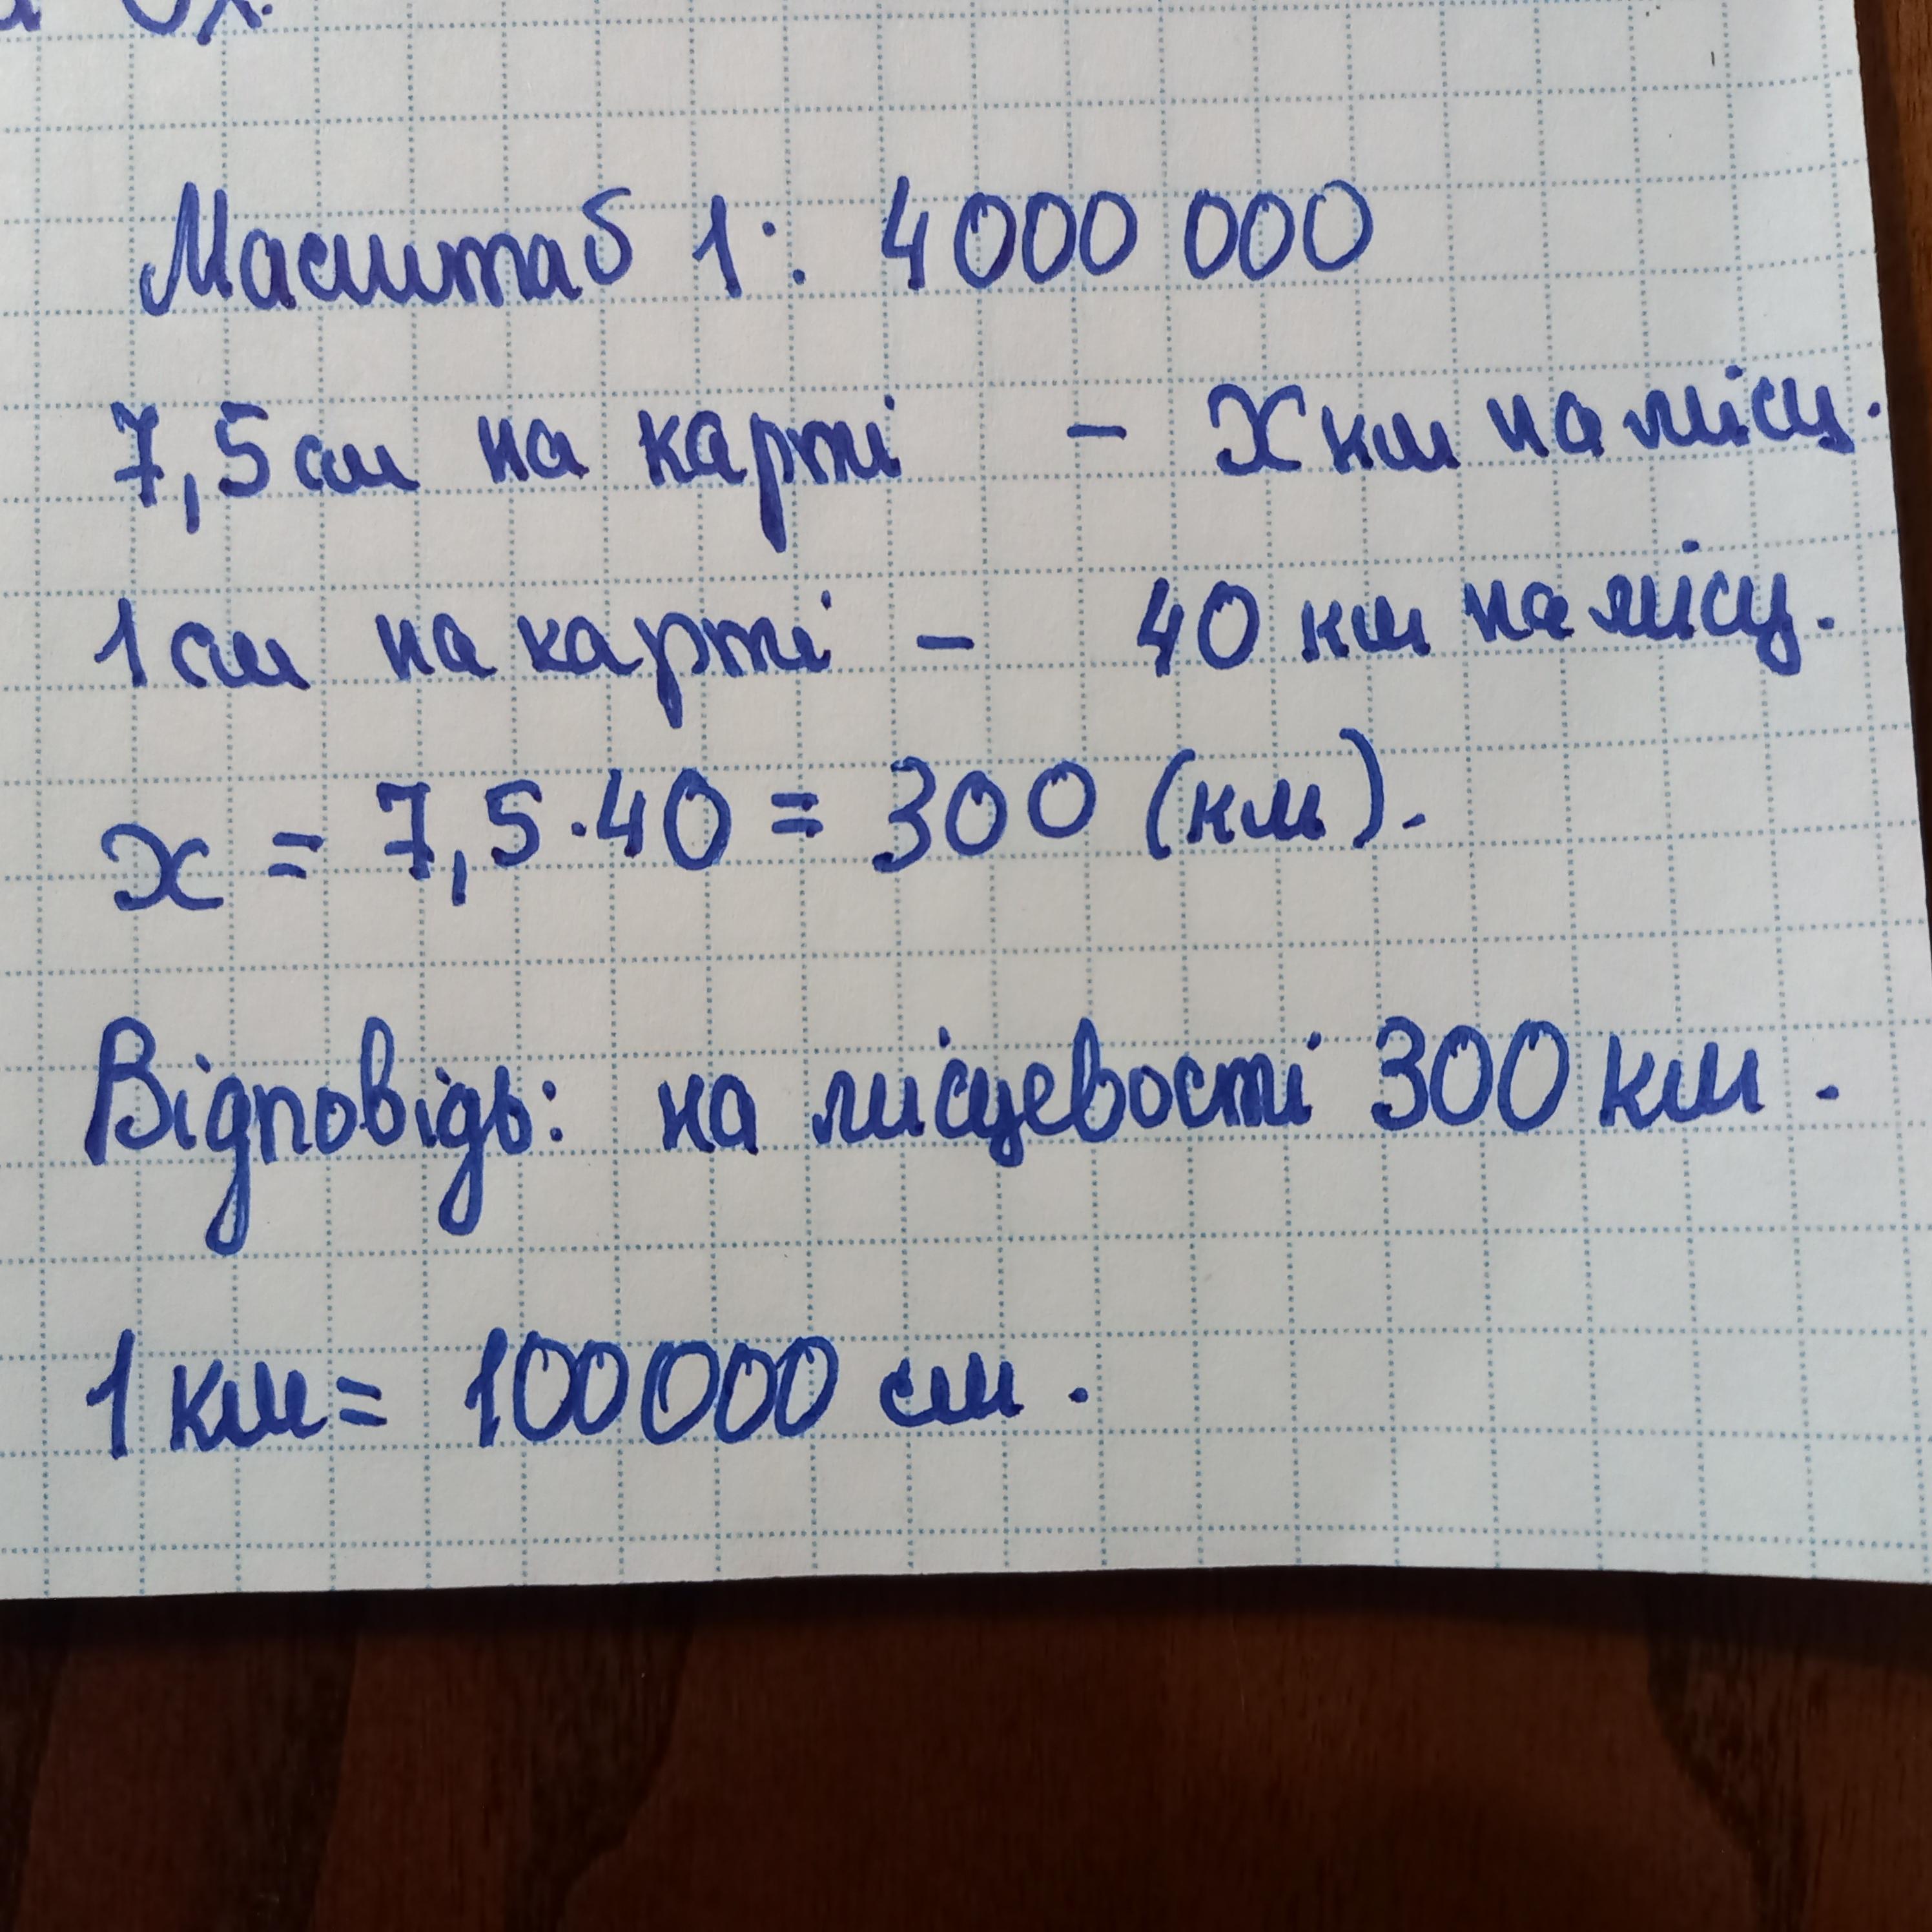 Масштаб 1: 4000 000
7,5 см на карті - x км на місц.
1 см на карті - 40 км на місц.
x = 7,5·40 = 300 (км).
Відповідь: на місцевості 300 км.
1 км = 100000 см.